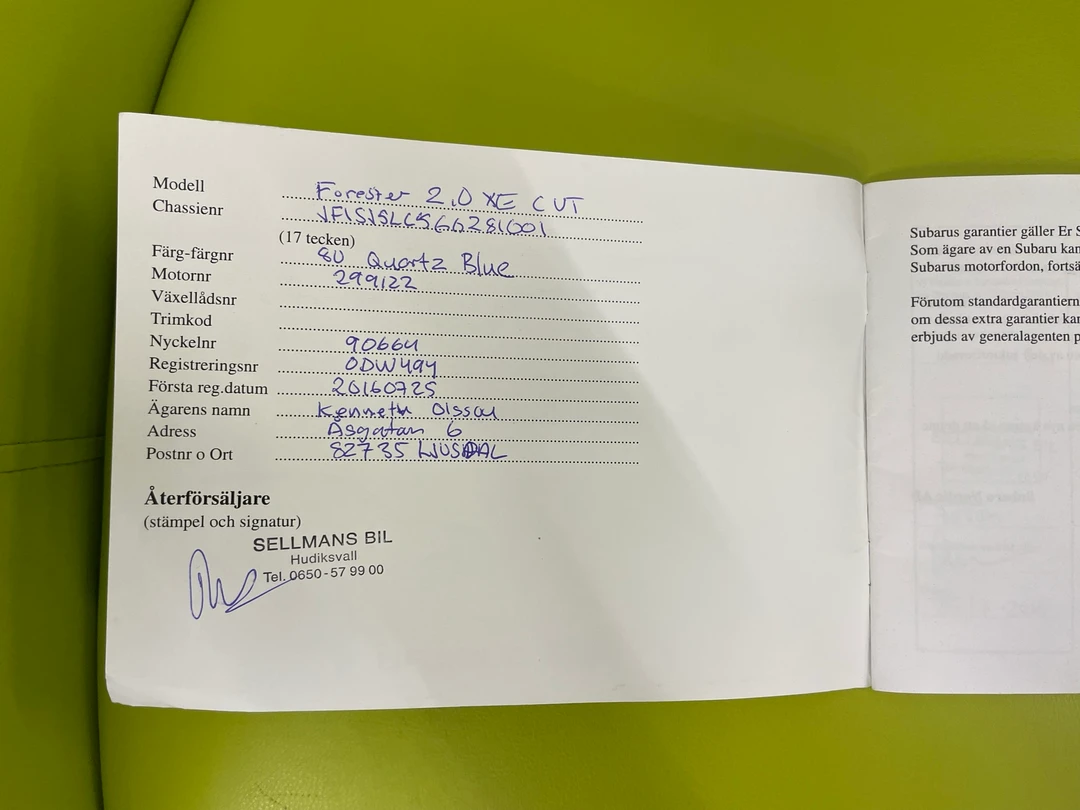 Modell Forester 2,0 XE CVT
Chassienr JF1SJ5LC5GG281001
(17 tecken)
Färg-färgnr 8U Quartz Blue
Motornr 299122
Växellådsnr
Trimkod
Nyckelnr 90664
Registreringsnr ODW494
Första reg.datum 20160725
Ägarens namn Kenneth Olsson
Adress Åsgatan 6
Postnr o Ort 82735 LJUSDAL
Återförsäljare
(stämpel och signatur)
SELLMANS BIL
Hudiksvall
Tel. 0650-57 99 00
Subarus garantier gäller Er S
Som ägare av en Subaru kan
Subarus motorfordon, fortsä
Förutom standardgarantiern
om dessa extra garantier kan
erbjuds av generalagenten p